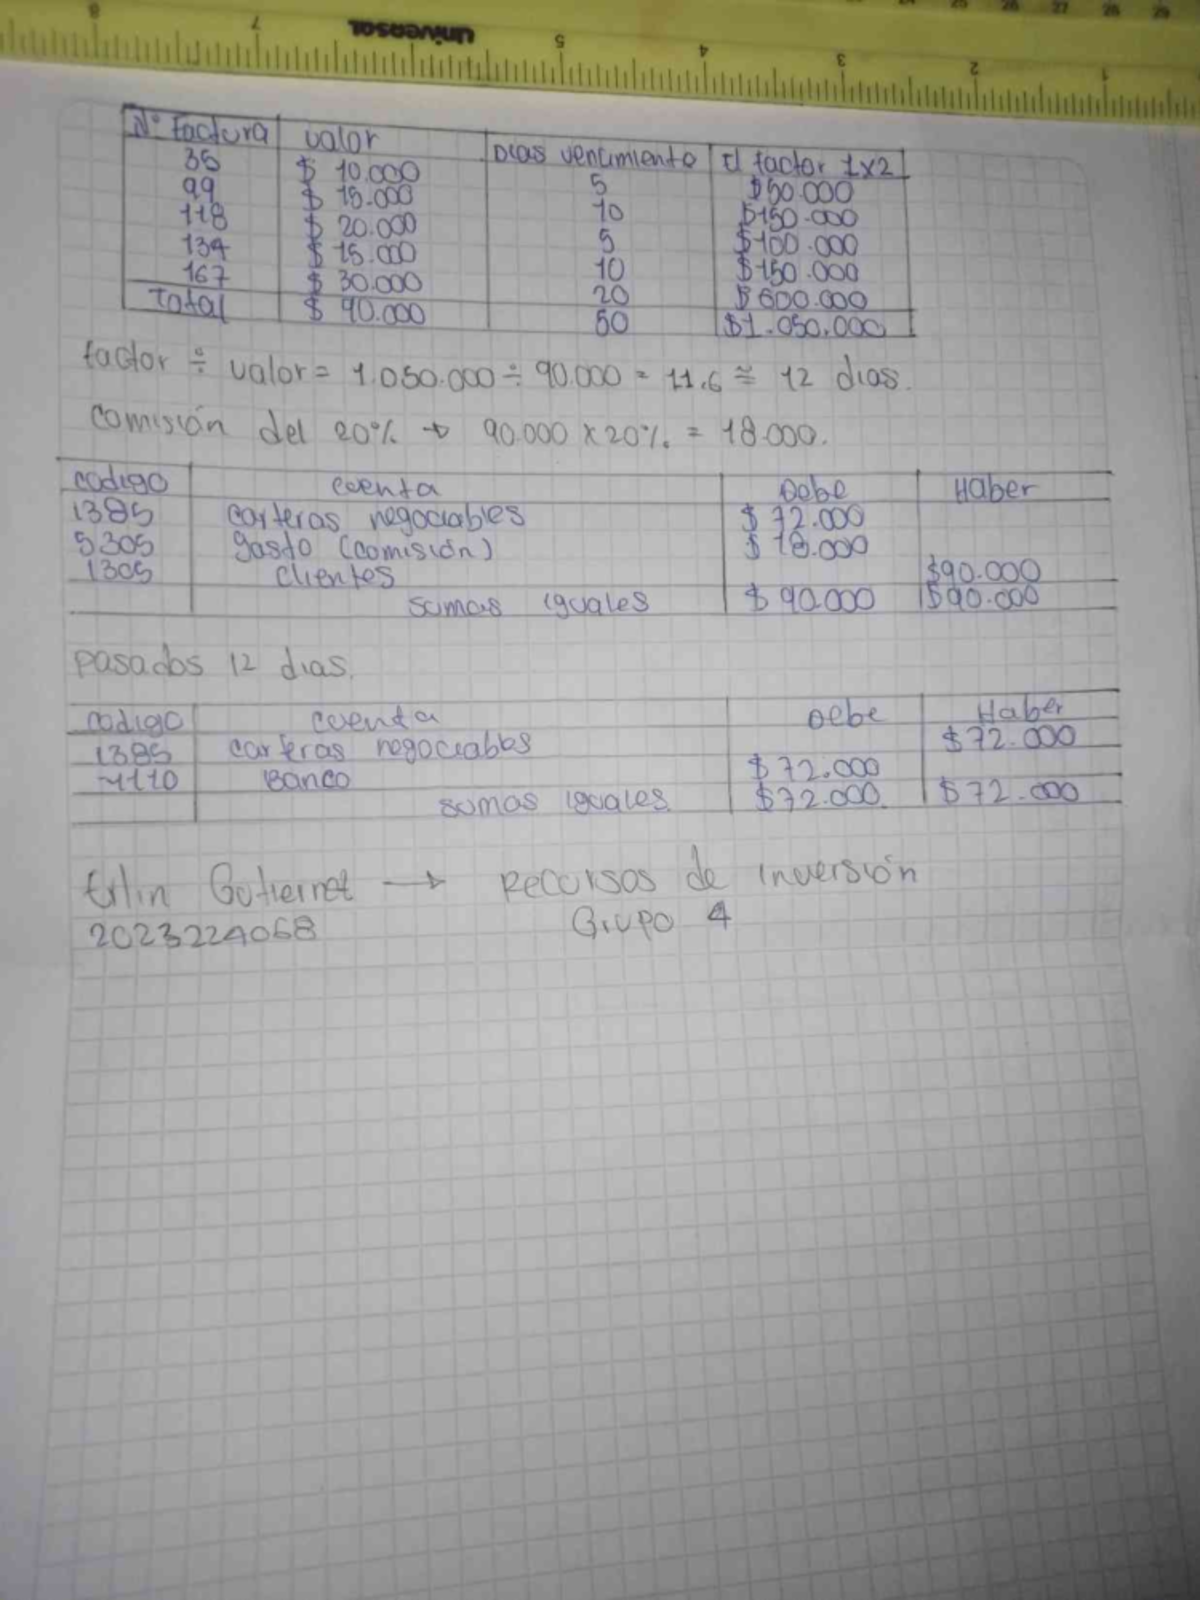 universal
N° factura | valor | Dias vencimiento | El factor 1x2
35 | $ 10.000 | 5 | $50.000
99 | $ 15.000 | 10 | $150.000
118 | $ 20.000 | 5 | $100.000
134 | $ 15.000 | 10 | $150.000
167 | $ 30.000 | 20 | $600.000
Total | $ 90.000 | 50 | $1.050.000
factor ÷ valor = 1.050.000 ÷ 90.000 = 11.6 ≅ 12 dias.
comisión del 20% → 90.000 x 20% = 18.000.
codigo | cuenta | Debe | Haber
1385 | carteras negociables | $ 72.000
5305 | gasto (comisión) | $ 18.000
1305 | clientes | $90.000
sumas iguales | $ 90.000 | $90.000
pasados 12 dias.
codigo | cuenta | Debe | Haber
1385 | carteras negociables | $72.000
1110 | Banco | $72.000
sumas iguales. | $72.000. | $72.000
Erlin Gutierrez → Recursos de inversión
2023224068 Grupo 4